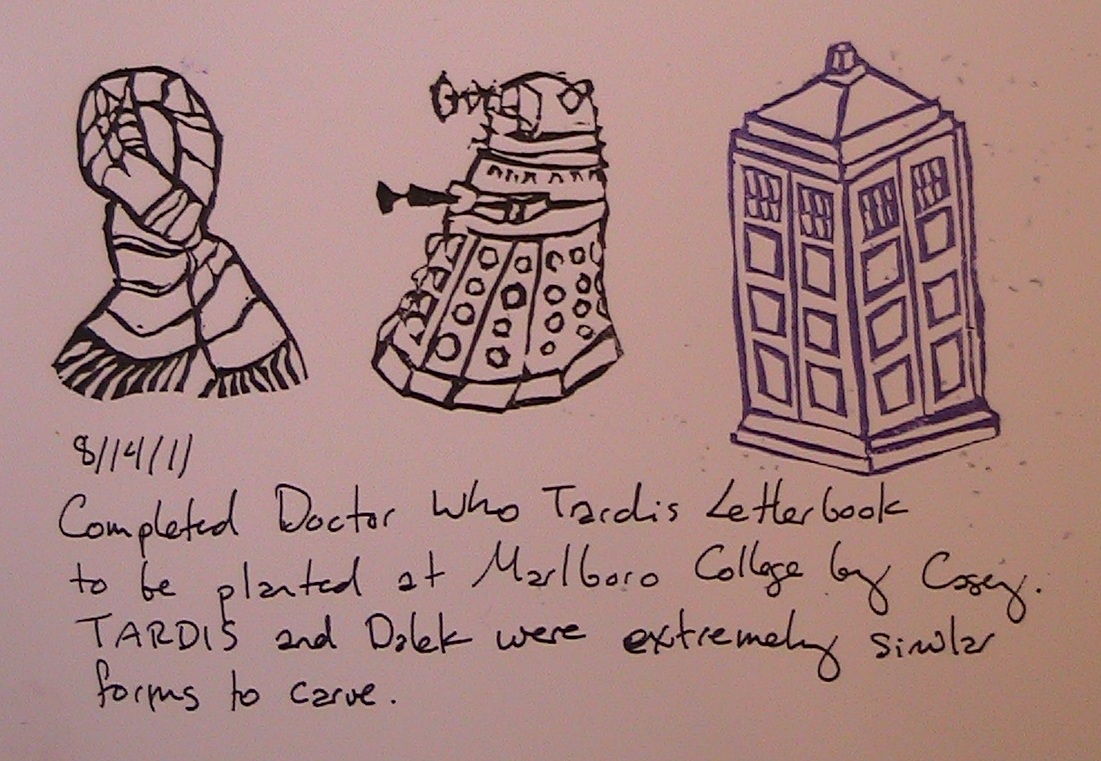 8/14/11
Completed Doctor Who Tardis Letterbook
to be planted at Marlboro College by Casey.
TARDIS and Dalek were extremely similar
forms to carve.